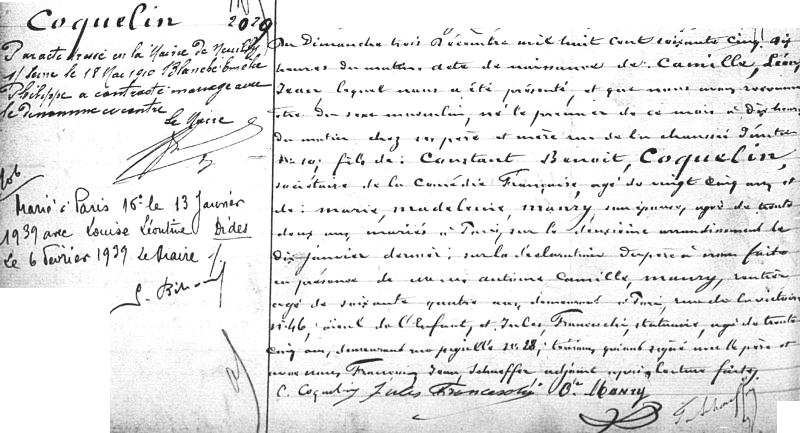 Coquelin
2029
Par acte dressé en la Mairie de Neuilly
s/ Seine le 18 Mai 1910 Blanche Emélie
Philippe a contracté mariage avec
le dénommé ci contre
Le Maire
Marié à Paris 16e le 13 Janvier
1939 avec Louise Léontine Dides
Le 6 février 1939 Le Maire
Du Dimanche trois Décembre mil huit cent soixante cinq, dix
heures du matin, acte de naissance de Camille, Léon,
Jean lequel nous a été présenté, et que nous avons reconnu
être du sexe masculin, né le premier de ce mois à dix heures
du matin chez ses père et mère rue de la chaussée d'antin
No 19; fils de: Constant Benoit, Coquelin,
sociétaire de la Comédie Française, agé de vingt cinq ans, et
de: marie, madeleine, manry, son épouse, agée de trente
deux ans, mariés à Paris, sur le deuxième arrondissement le
dix janvier dernier; sur la déclaration du père à nous faite
en présence de antoine Camille, maury, rentier
agé de soixante quatre ans, demeurant à Paris, rue de la victoire
No 46, aïeul de l'Enfant, et Jules, Franceschi, statuaire, agé de trente
cinq ans, demeurant rue pigalle No 28; témoins qui ont signé avec le père et
avec nous François Jean Schaeffer adjoint après lecture faite.
C. Coquelin Jules Franceschi Manry